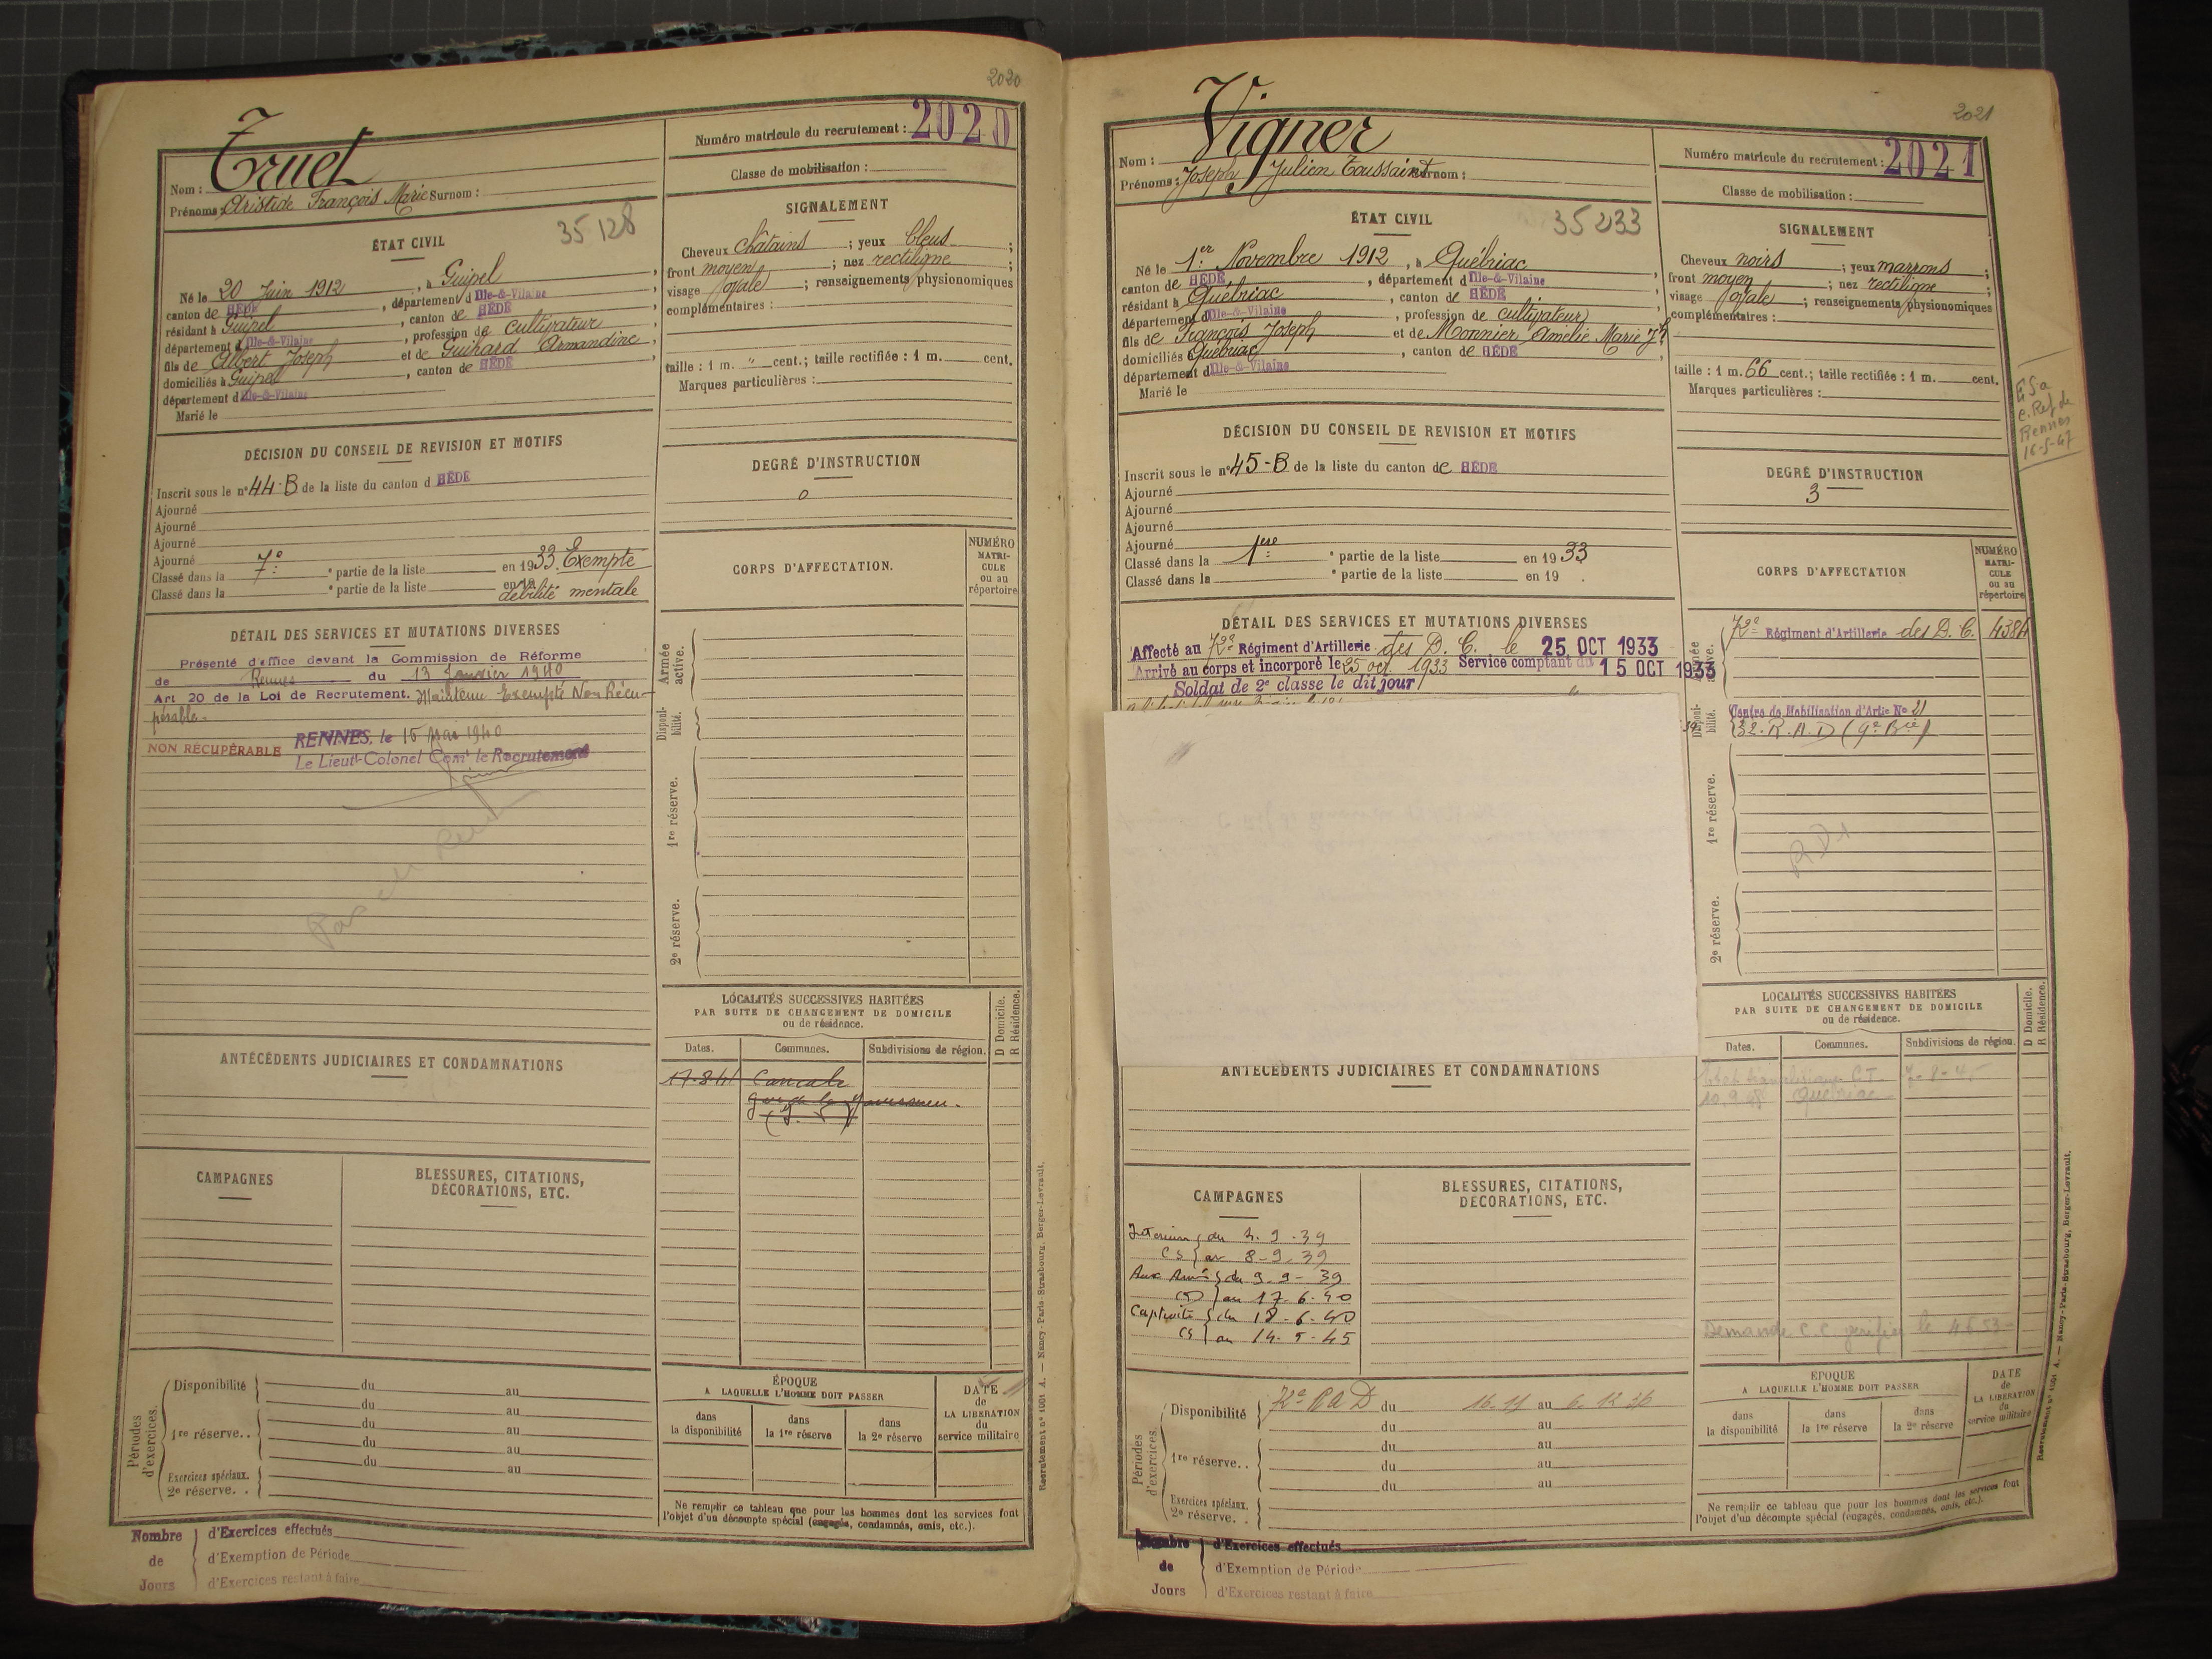 2020
Nom : Truel
Numéro matricule du recrutement : 2020
Prénoms : Aristide François Marie Surnom :
Classe de mobilisation :
35128
ÉTAT CIVIL
Né le 20 Juin 1912, à Guipel,
canton de HÉDÉ, département d Ille-&-Vilaine
résidant à Guipel, canton de HÉDÉ
département d Ille-&-Vilaine, profession de cultivateur,
fils de Albert Joseph et de Guihard Armandine,
domiciliés à Guipel, canton de HÉDÉ,
département d Ille-&-Vilaine
Marié le
SIGNALEMENT
Cheveux châtains ; yeux bleus ;
front moyen ; nez rectiligne ;
visage ovale ; renseignements physionomiques
complémentaires :
taille : 1 m. " cent.; taille rectifiée : 1 m. cent.
Marques particulières :
DÉCISION DU CONSEIL DE REVISION ET MOTIFS
Inscrit sous le n° 44-B de la liste du canton d HÉDÉ
Ajourné
Ajourné
Ajourné
Ajourné
Classé dans la 7e partie de la liste en 1933 Exempté
Classé dans la e partie de la liste en 19 débilité mentale
DEGRÉ D'INSTRUCTION
0
CORPS D'AFFECTATION.
NUMÉRO
MATRI-
CULE
ou au
répertoire
DÉTAIL DES SERVICES ET MUTATIONS DIVERSES
Présenté d'office devant la Commission de Réforme
de Rennes du 13 Janvier 1940
Art 20 de la Loi de Recrutement. Maintenu Exempté Non Récu-
pérable.
NON RÉCUPÉRABLE RENNES, le 15 Mai 1940
Le Lieutt-Colonel Comt le Recrutement
Armée
active.
Disponi-
bilité.
1re réserve.
2e réserve.
LOCALITÉS SUCCESSIVES HABITÉES
PAR SUITE DE CHANGEMENT DE DOMICILE
ou de résidence.
D Domicile.
R Résidence.
Dates.
Communes.
Subdivisions de région.
17.8.41 Cancale
ANTÉCÉDENTS JUDICIAIRES ET CONDAMNATIONS
CAMPAGNES
BLESSURES, CITATIONS,
DÉCORATIONS, ETC.
Périodes
d'exercices.
Disponibilité du au
du au
1re réserve.. du au
du au
du au
Exercices spéciaux.
2e réserve. .
ÉPOQUE
A LAQUELLE L'HOMME DOIT PASSER
dans
la disponibilité
dans
la 1re réserve
dans
la 2e réserve
DATE
de
LA LIBÉRATION
du
service militaire
Ne remplir ce tableau que pour les hommes dont les services font
l'objet d'un décompte spécial (engagés, condamnés, omis, etc.).
Nombre
de
Jours
d'Exercices effectués
d'Exemption de Période
d'Exercices restant à faire
Recrutement n° 1001 A. — Nancy-Paris-Strasbourg, Berger-Levrault.
2021
Nom : Vigner
Numéro matricule du recrutement : 2021
Prénoms : Joseph Julien Toussaint Surnom :
Classe de mobilisation :
35233
ÉTAT CIVIL
Né le 1er Novembre 1912, à Québriac,
canton de HÉDÉ, département d Ille-&-Vilaine
résidant à Québriac, canton de HÉDÉ
département d Ille-&-Vilaine, profession de cultivateur,
fils de François Joseph et de Monnier Amélie Marie Jh
domiciliés Québriac, canton de HÉDÉ,
département d Ille-&-Vilaine
Marié le
SIGNALEMENT
Cheveux noirs ; yeux marrons ;
front moyen ; nez rectiligne ;
visage ovale ; renseignements physionomiques
complémentaires :
taille : 1 m. 66 cent.; taille rectifiée : 1 m. cent.
Marques particulières :
c. Ref de
Rennes
16-5-47
DÉCISION DU CONSEIL DE REVISION ET MOTIFS
Inscrit sous le n° 45-B de la liste du canton de HÉDÉ
Ajourné
Ajourné
Ajourné
Ajourné
Classé dans la 1ère partie de la liste en 1933
Classé dans la e partie de la liste en 19 .
DEGRÉ D'INSTRUCTION
3
CORPS D'AFFECTATION
NUMÉRO
MATRI-
CULE
ou au
répertoire
DÉTAIL DES SERVICES ET MUTATIONS DIVERSES
Affecté au 72e Régiment d'Artillerie des D. C. le 25 OCT 1933
Arrivé au corps et incorporé le 25 oct. 1933 Service comptant du 15 OCT 1933
Soldat de 2e classe le dit jour
72e Régiment d'Artillerie des D. C. 4384
Centre de Mobilisation d'Artie No 21
32. R. A. D (9e Bie)
Disponi-
bilité.
1re réserve.
2e réserve.
LOCALITÉS SUCCESSIVES HABITÉES
PAR SUITE DE CHANGEMENT DE DOMICILE
ou de résidence.
D Domicile.
R Résidence.
Dates.
Communes.
Subdivisions de région.
Québriac
ANTÉCÉDENTS JUDICIAIRES ET CONDAMNATIONS
CAMPAGNES
BLESSURES, CITATIONS,
DÉCORATIONS, ETC.
Intérieur du 3.9.39
CS au 8-9-39
Aux Armées du 9-9-39
au 17-6-40
Captivité du 18-6-40
CS au 14-5-45
Demande C.C.
Périodes
d'exercices.
Disponibilité 72e RAD du 16.11 au 6.12.36
du au
1re réserve.. du au
du au
du au
Exercices spéciaux.
2e réserve. .
ÉPOQUE
A LAQUELLE L'HOMME DOIT PASSER
dans
la disponibilité
dans
la 1re réserve
dans
la 2e réserve
DATE
de
LA LIBÉRATION
du
service militaire
Ne remplir ce tableau que pour les hommes dont les services font
l'objet d'un décompte spécial (engagés, condamnés, omis, etc.).
Nombre
de
Jours
d'Exercices effectués
d'Exemption de Période
d'Exercices restant à faire
Recrutement n° 1001 A. — Nancy-Paris-Strasbourg, Berger-Levrault.